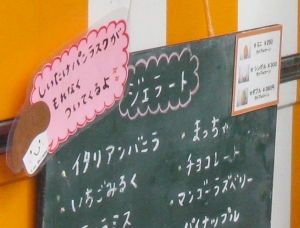 しいたけパンラスクが
もれなく
ついてくるよ
ジェラート
・イタリアンバニラ
・いちごみるく
ティラミス
・まっちゃ
・チョコレート
・マンゴーラズベリー
・パイナップル